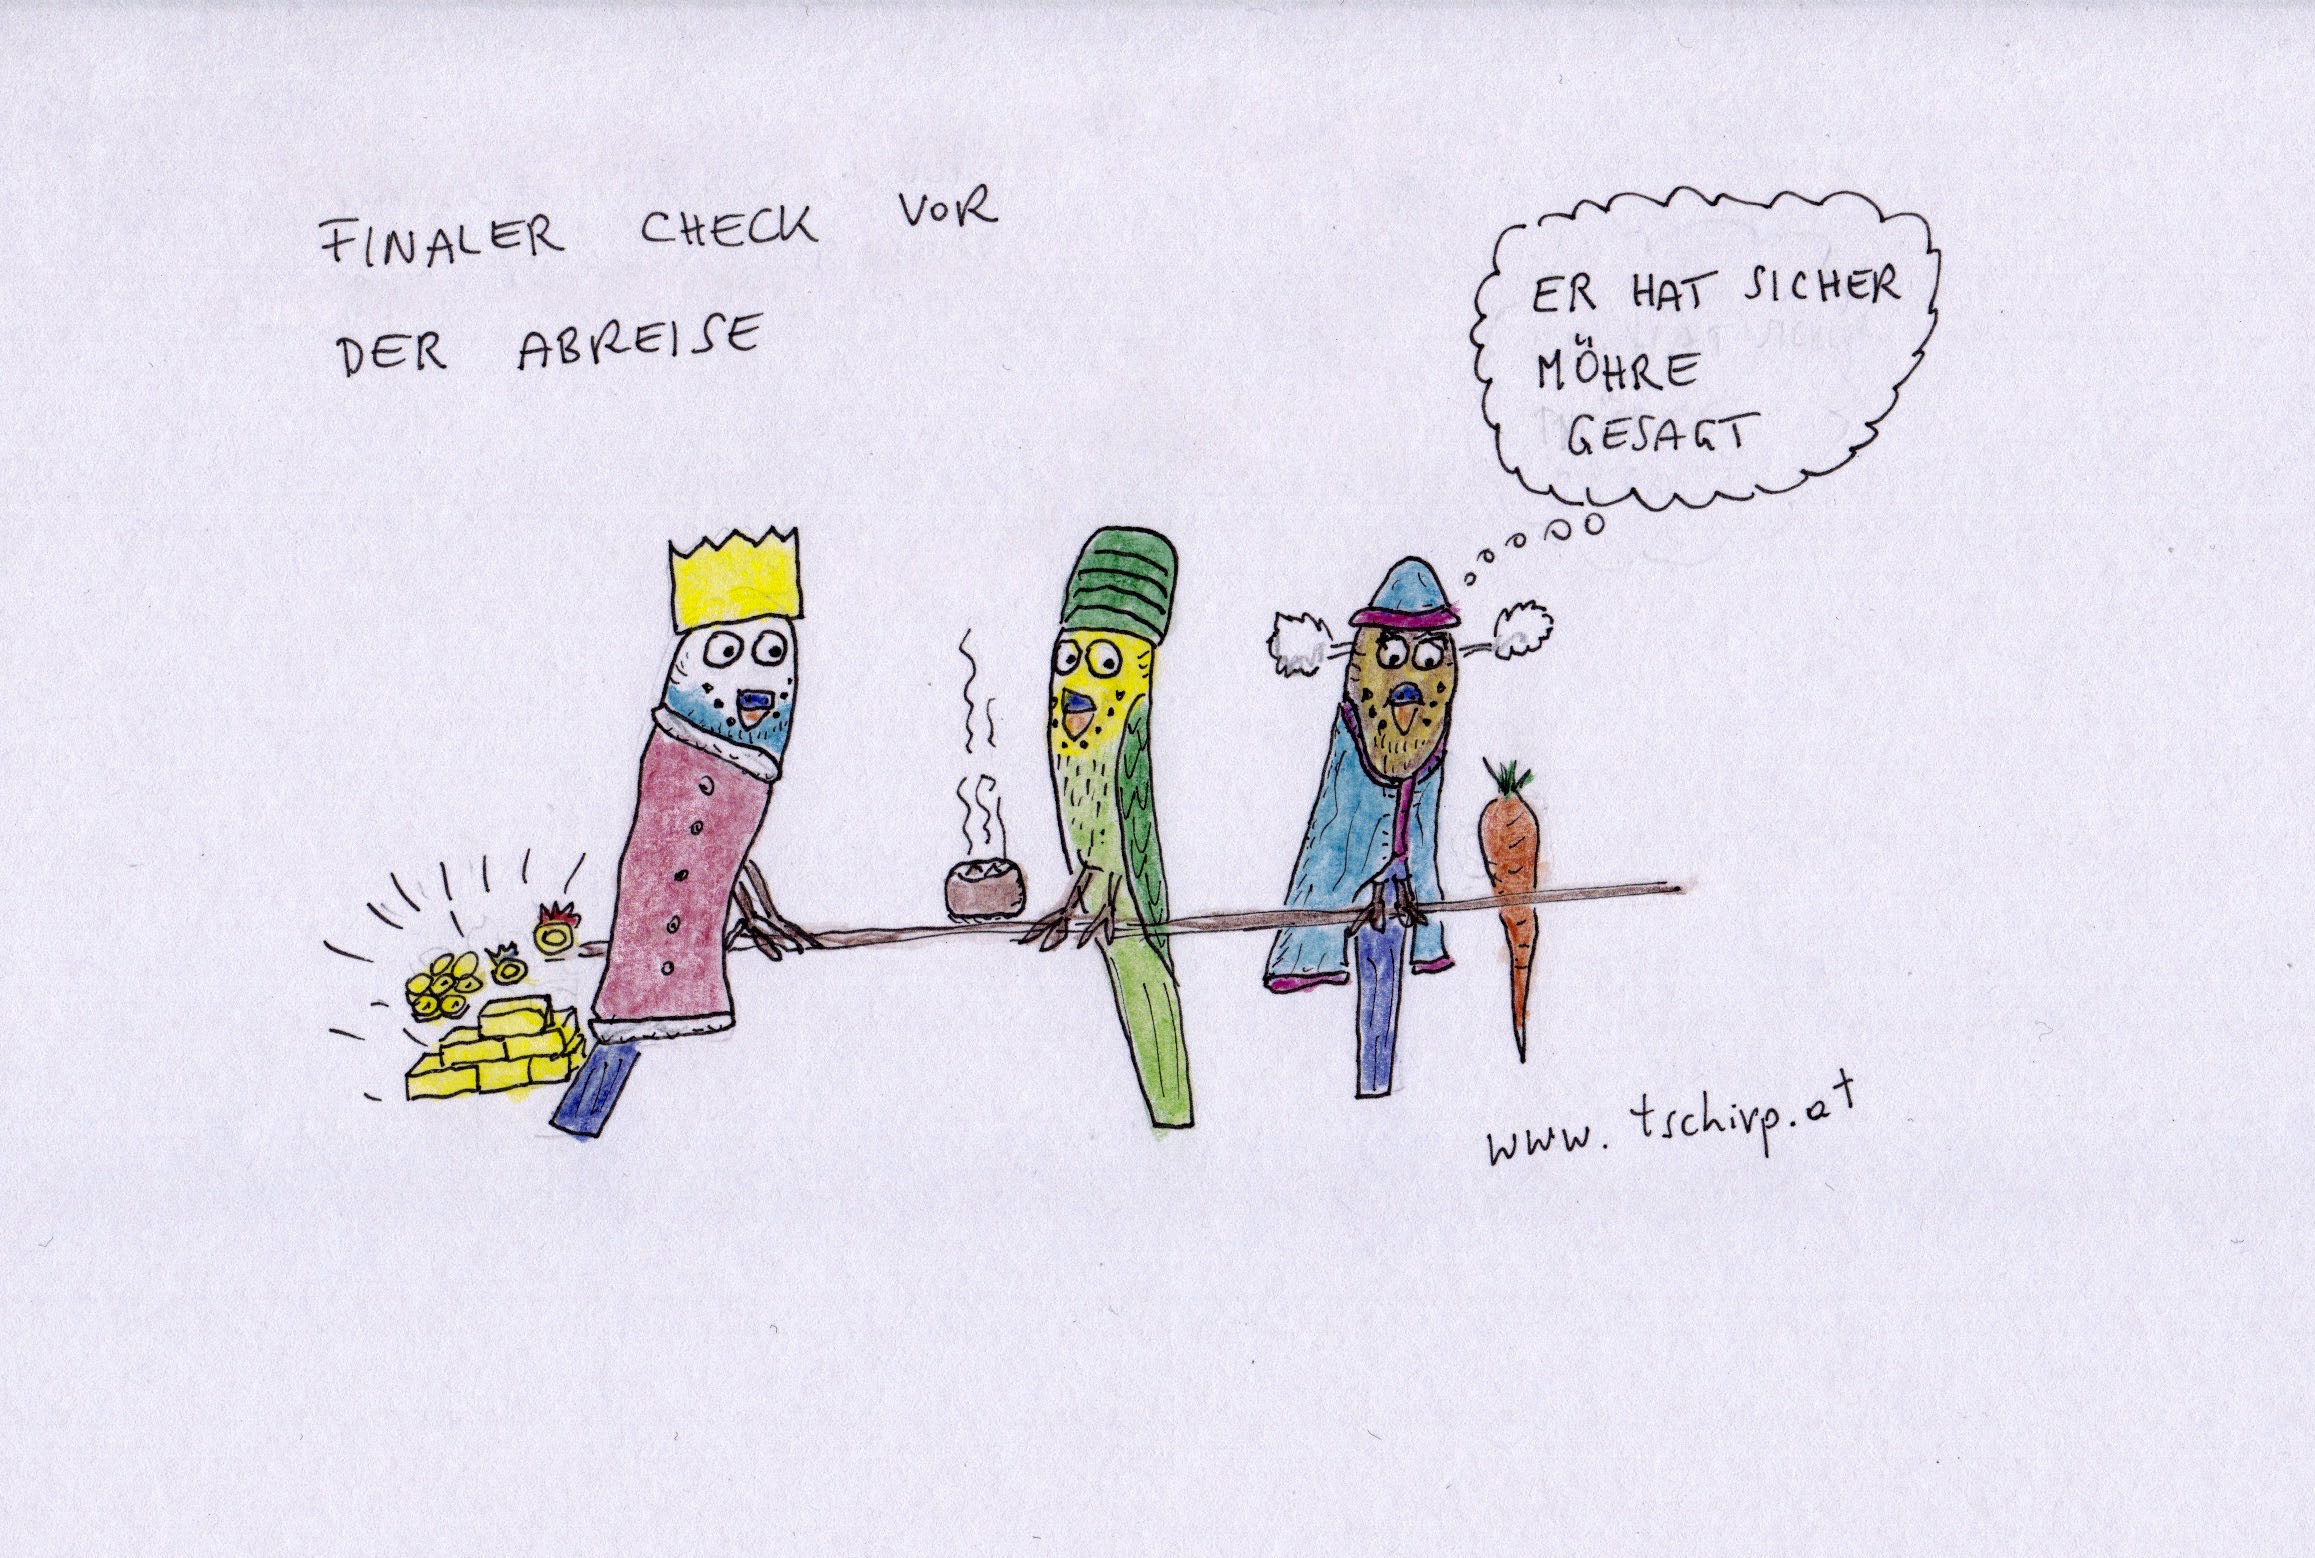 FINALER CHECK VOR
DER ABREISE
ER HAT SICHER
MÖHRE
GESAGT
www.tschirp.at